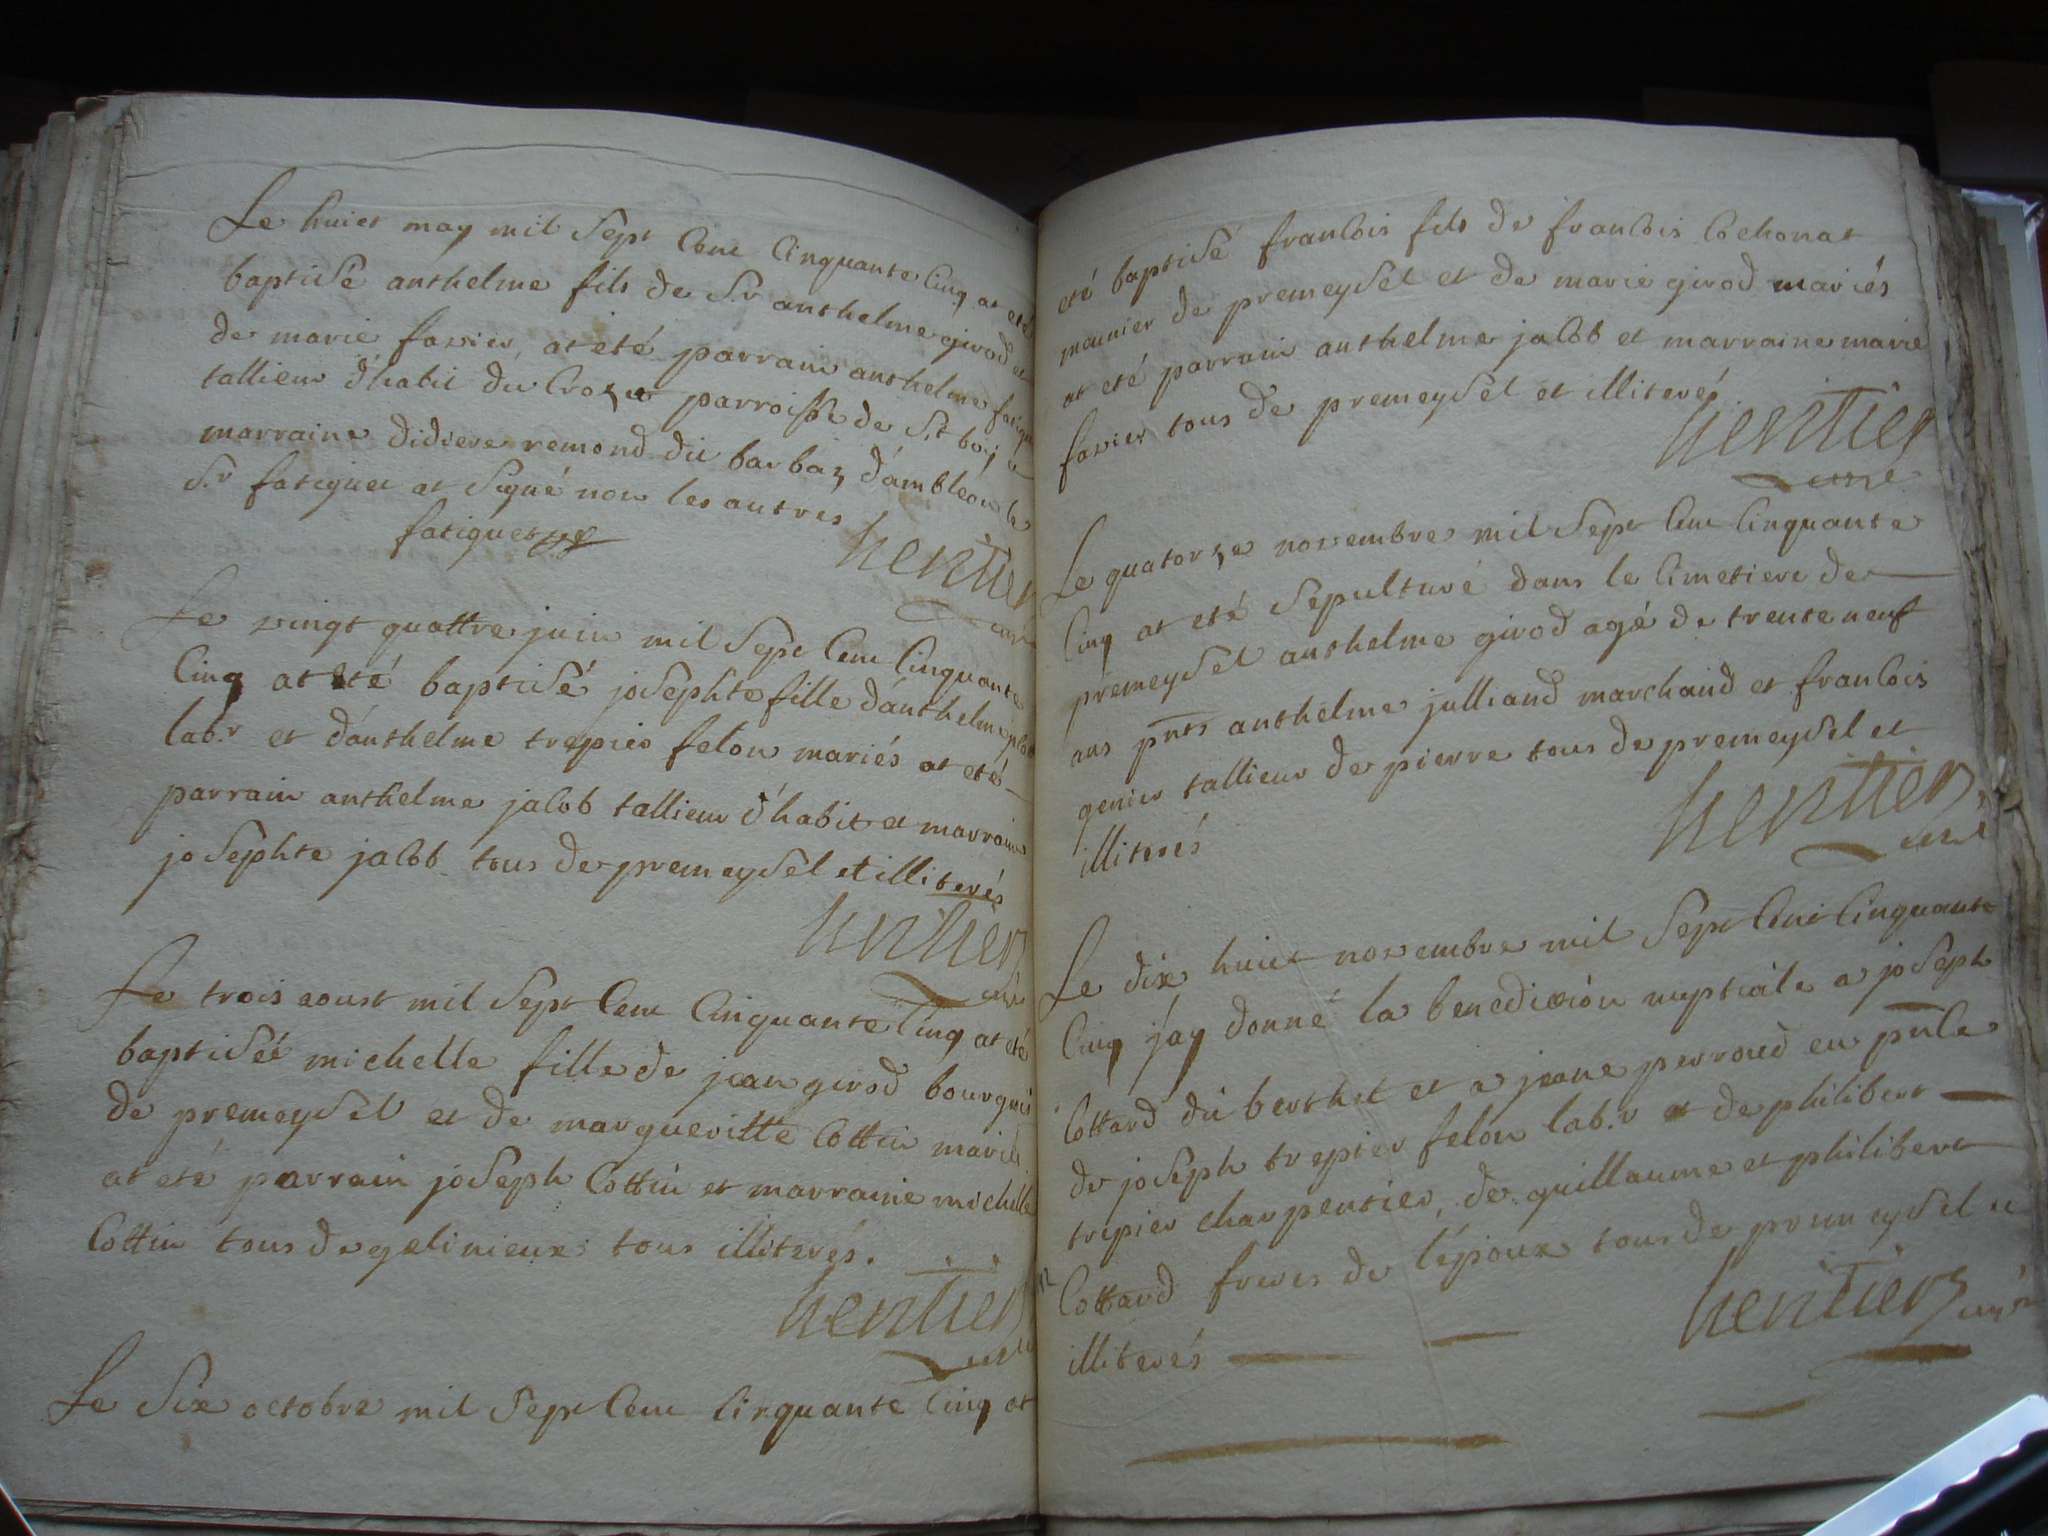 Le huict may mil sept cent cinquante cinq at eté
baptisé anthelme fils de Sr anthelme girod et
de marie favier, at eté parrain anthelme fatiguet
tallieur d'habit du Crozet parroisse de St bois et
marraine didiere remond dit barbaz d'ambléon le
Sr fatiguet at signé non les autres
fatiguet
hentier
curé
Le vingt quattre juin mil sept cent cinquante
cinq at eté baptisé josephte fille d'anthelme jalob
lab.r et d'anthelme trepier felon mariés at eté
parrain anthelme jalob tallieur d'habit et marraine
josephte jalob tous de premeysel et illiterés
hentier
curé
Le trois aoust mil sept cent cinquante cinq at eté
baptiseé michelle fille de jean girod bourgeois
de premeysel et de margueritte Cottin mariés
at eté parrain joseph Cottin et marraine michelle
Cottin tous de gelinieux tous illiterés.
hentier
curé
Le six octobre mil sept cent cinquante cinq at
eté baptisé francois fils de francois Cochonat
meunier de premeysel et de marie girod mariés
at eté parrain anthelme jalob et marraine marie
favier tous de premeysel et illiteré
hentier
curé
Le quatorze novembre mil sept cent cinquante
cinq at eté sepulturé dans le cimetiere de
premeysel anthelme girod agé de trente neuf
ans pnts anthelme julliand marchand et francois
genier tallieur de pierre tous de premeysel et
illiterés
hentier
curé
Le dix huict novembre mil sept cent cinquante
cinq j'ay donné la benedixion nuptiale a joseph
Cottard du berthet et a jeane perroud en pnce
de joseph trepier felon lab.r et de philibert
trepier charpentier, de guillaume et philibert
Cottard freres de l'epoux tous de premeysel et
illiterés
hentier
curé